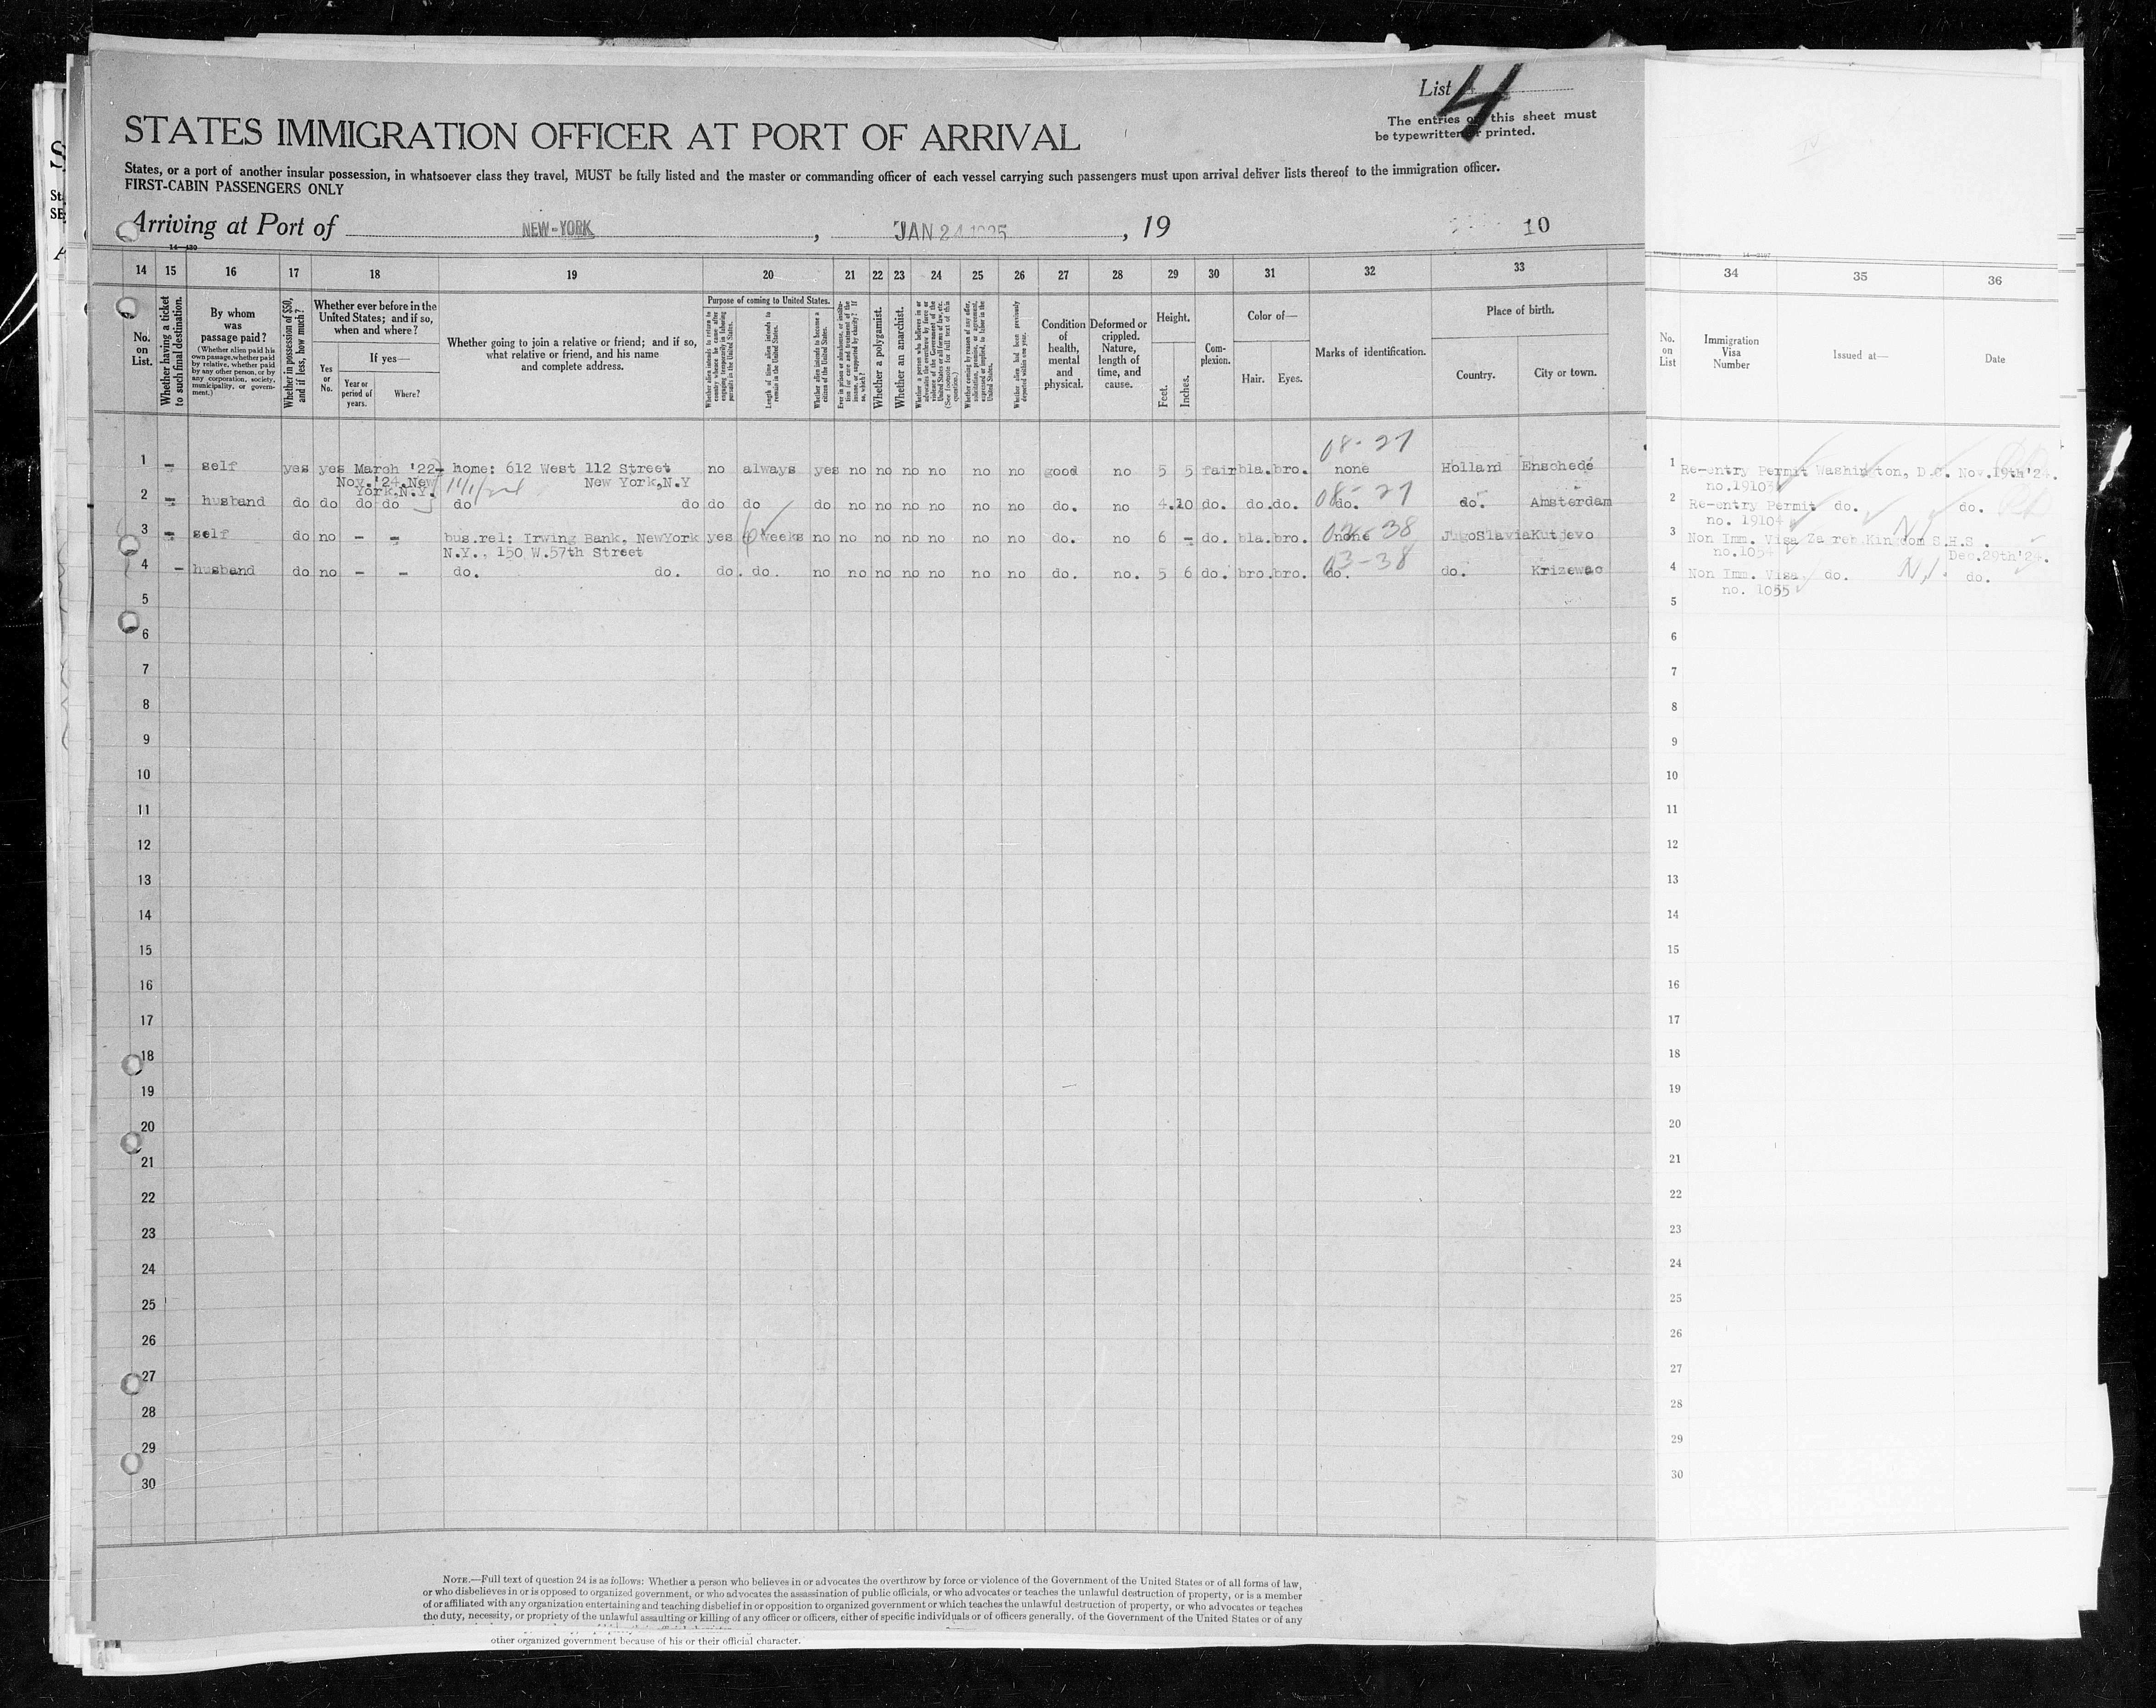 List 4
The entries on this sheet must
be typewritten or printed.
STATES IMMIGRATION OFFICER AT PORT OF ARRIVAL
States, or a port of another insular possession, in whatsoever class they travel, MUST be fully listed and the master or commanding officer of each vessel carrying such passengers must upon arrival deliver lists thereof to the immigration officer.
FIRST-CABIN PASSENGERS ONLY
Arriving at Port of NEW-YORK, JAN 24 1925, 19 10
14 15 16 17 18 19 20 21 22 23 24 25 26 27 28 29 30 31 32 33 34 35 36
No. on List.
Whether having a ticket to such final destination.
By whom was passage paid?
(Whether alien paid his own passage, whether paid by relative, whether paid by any other person, or by any corporation, society, municipality, or government.)
Whether in possession of $50, and if less, how much?
Whether ever before in the United States; and if so, when and where?
Yes or No.
If yes—
Year or period of years.
Where?
Whether going to join a relative or friend; and if so, what relative or friend, and his name and complete address.
Purpose of coming to United States.
Whether alien intends to return to country whence he came after engaging temporarily in laboring pursuits in the United States.
Length of time alien intends to remain in the United States.
Whether alien intends to become a citizen of the United States.
Ever in prison or almshouse, or institution for care and treatment of the insane, or supported by charity? If so, which?
Whether a polygamist.
Whether an anarchist.
Whether a person who believes in or advocates the overthrow by force or violence of the Government of the United States or all forms of law, etc. (See footnote for full text of this question.)
Whether coming by reason of any offer, solicitation, promise, or agreement, expressed or implied, to labor in the United States.
Whether alien had been previously deported within one year.
Condition of health, mental and physical.
Deformed or crippled. Nature, length of time, and cause.
Height.
Feet. Inches.
Complexion.
Color of—
Hair. Eyes.
Marks of identification.
Place of birth.
Country. City or town.
No. on List
Immigration Visa Number
Issued at—
Date
08-27
1 – self yes yes March '22- home: 612 West 112 Street no always yes no no no no no no good no 5 5 fair bla. bro. none Holland Enschedé 1 Re-entry Permit Washington, D.C. Nov.19th'24.
Nov.'24.New York,N.Y. New York,N.Y no.19103
08-27
2 – husband do do do do do do do do do no no no no no no do. no 4.10 do. do. do. do. do. Amsterdam 2 Re-entry Permit do. do.
no. 19104
03-38
3 – self do no – – bus.rel: Irving Bank, NewYork yes 6 weeks no no no no no no no do. no 6 – do. bla. bro. none JugoSlavia Kutjevo 3 Non Imm. Visa Zagreb Kingdom S.H.S.
N.Y., 150 W.57th Street no.1054 Dec.29th'24.
03-38
4 – husband do no – – do. do. do. do. no no no no no no no do. no. 5 6 do. bro. bro. do. do. Krizevac 4 Non Imm. Visa do. N.I. do.
no. 1055
5 5
6 6
7 7
8 8
9 9
10 10
11 11
12 12
13 13
14 14
15 15
16 16
17 17
18 18
19 19
20 20
21 21
22 22
23 23
24 24
25 25
26 26
27 27
28 28
29 29
30 30
NOTE.—Full text of question 24 is as follows: Whether a person who believes in or advocates the overthrow by force or violence of the Government of the United States or of all forms of law,
or who disbelieves in or is opposed to organized government, or who advocates the assassination of public officials, or who advocates or teaches the unlawful destruction of property, or is a member
of or affiliated with any organization entertaining and teaching disbelief in or opposition to organized government or which teaches the unlawful destruction of property, or who advocates or teaches
the duty, necessity, or propriety of the unlawful assaulting or killing of any officer or officers, either of specific individuals or of officers generally, of the Government of the United States or of any
other organized government because of his or their official character.